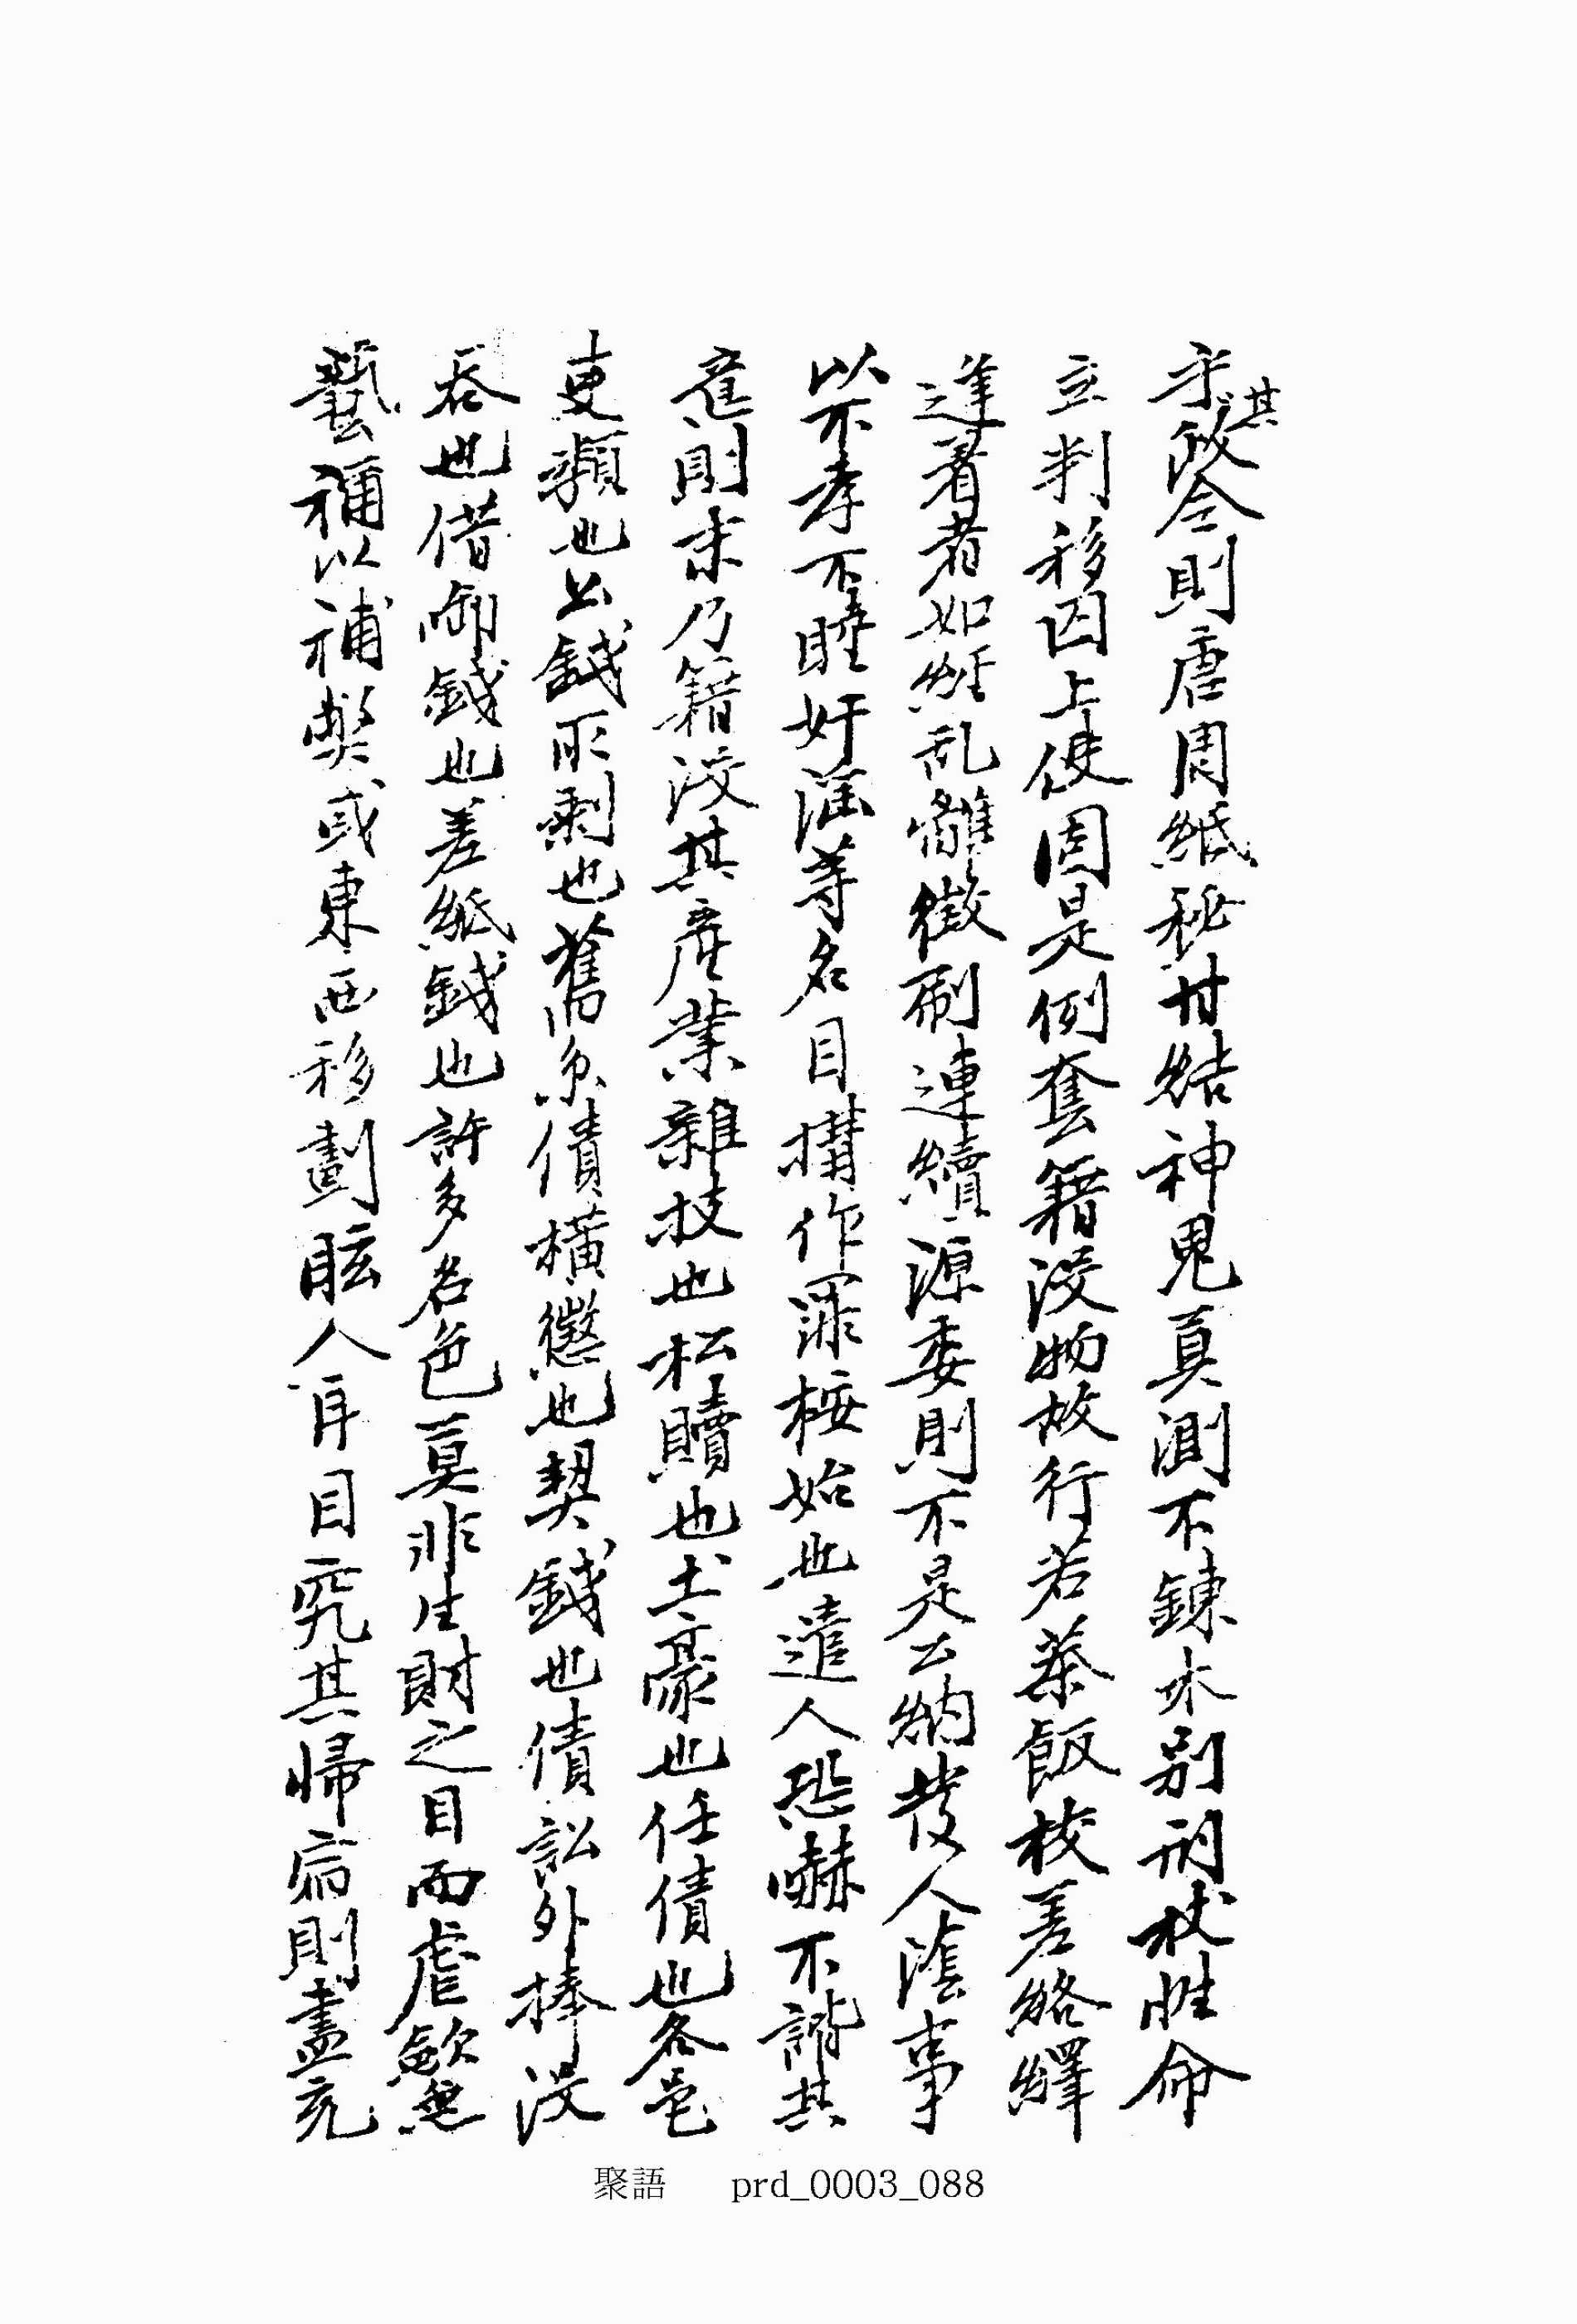 示其政令則唐周紙秘甘結神鬼莫測不鍊木別刑杖性命
立判移囚上使因是例套籍沒物故行若茶飯校差絡繹
逢着者如經乱離徵刷連續源委則不是公納發人陰事
以不孝不睦奸淫等名目搆作罪案始也遣人恐嚇不諧其
意則末乃籍沒其產業雜技也松贖也土豪也任債也各邑
吏頉也公錢所剩也舊糸債橫懲也契錢也債訟外捧沒
吞也借啣錢也差紙錢也許多名色莫非生財之目而虐斂無
藝稱以補弊或東西移劃眩人耳目究其歸宿則盡充
聚語 prd_0003_088